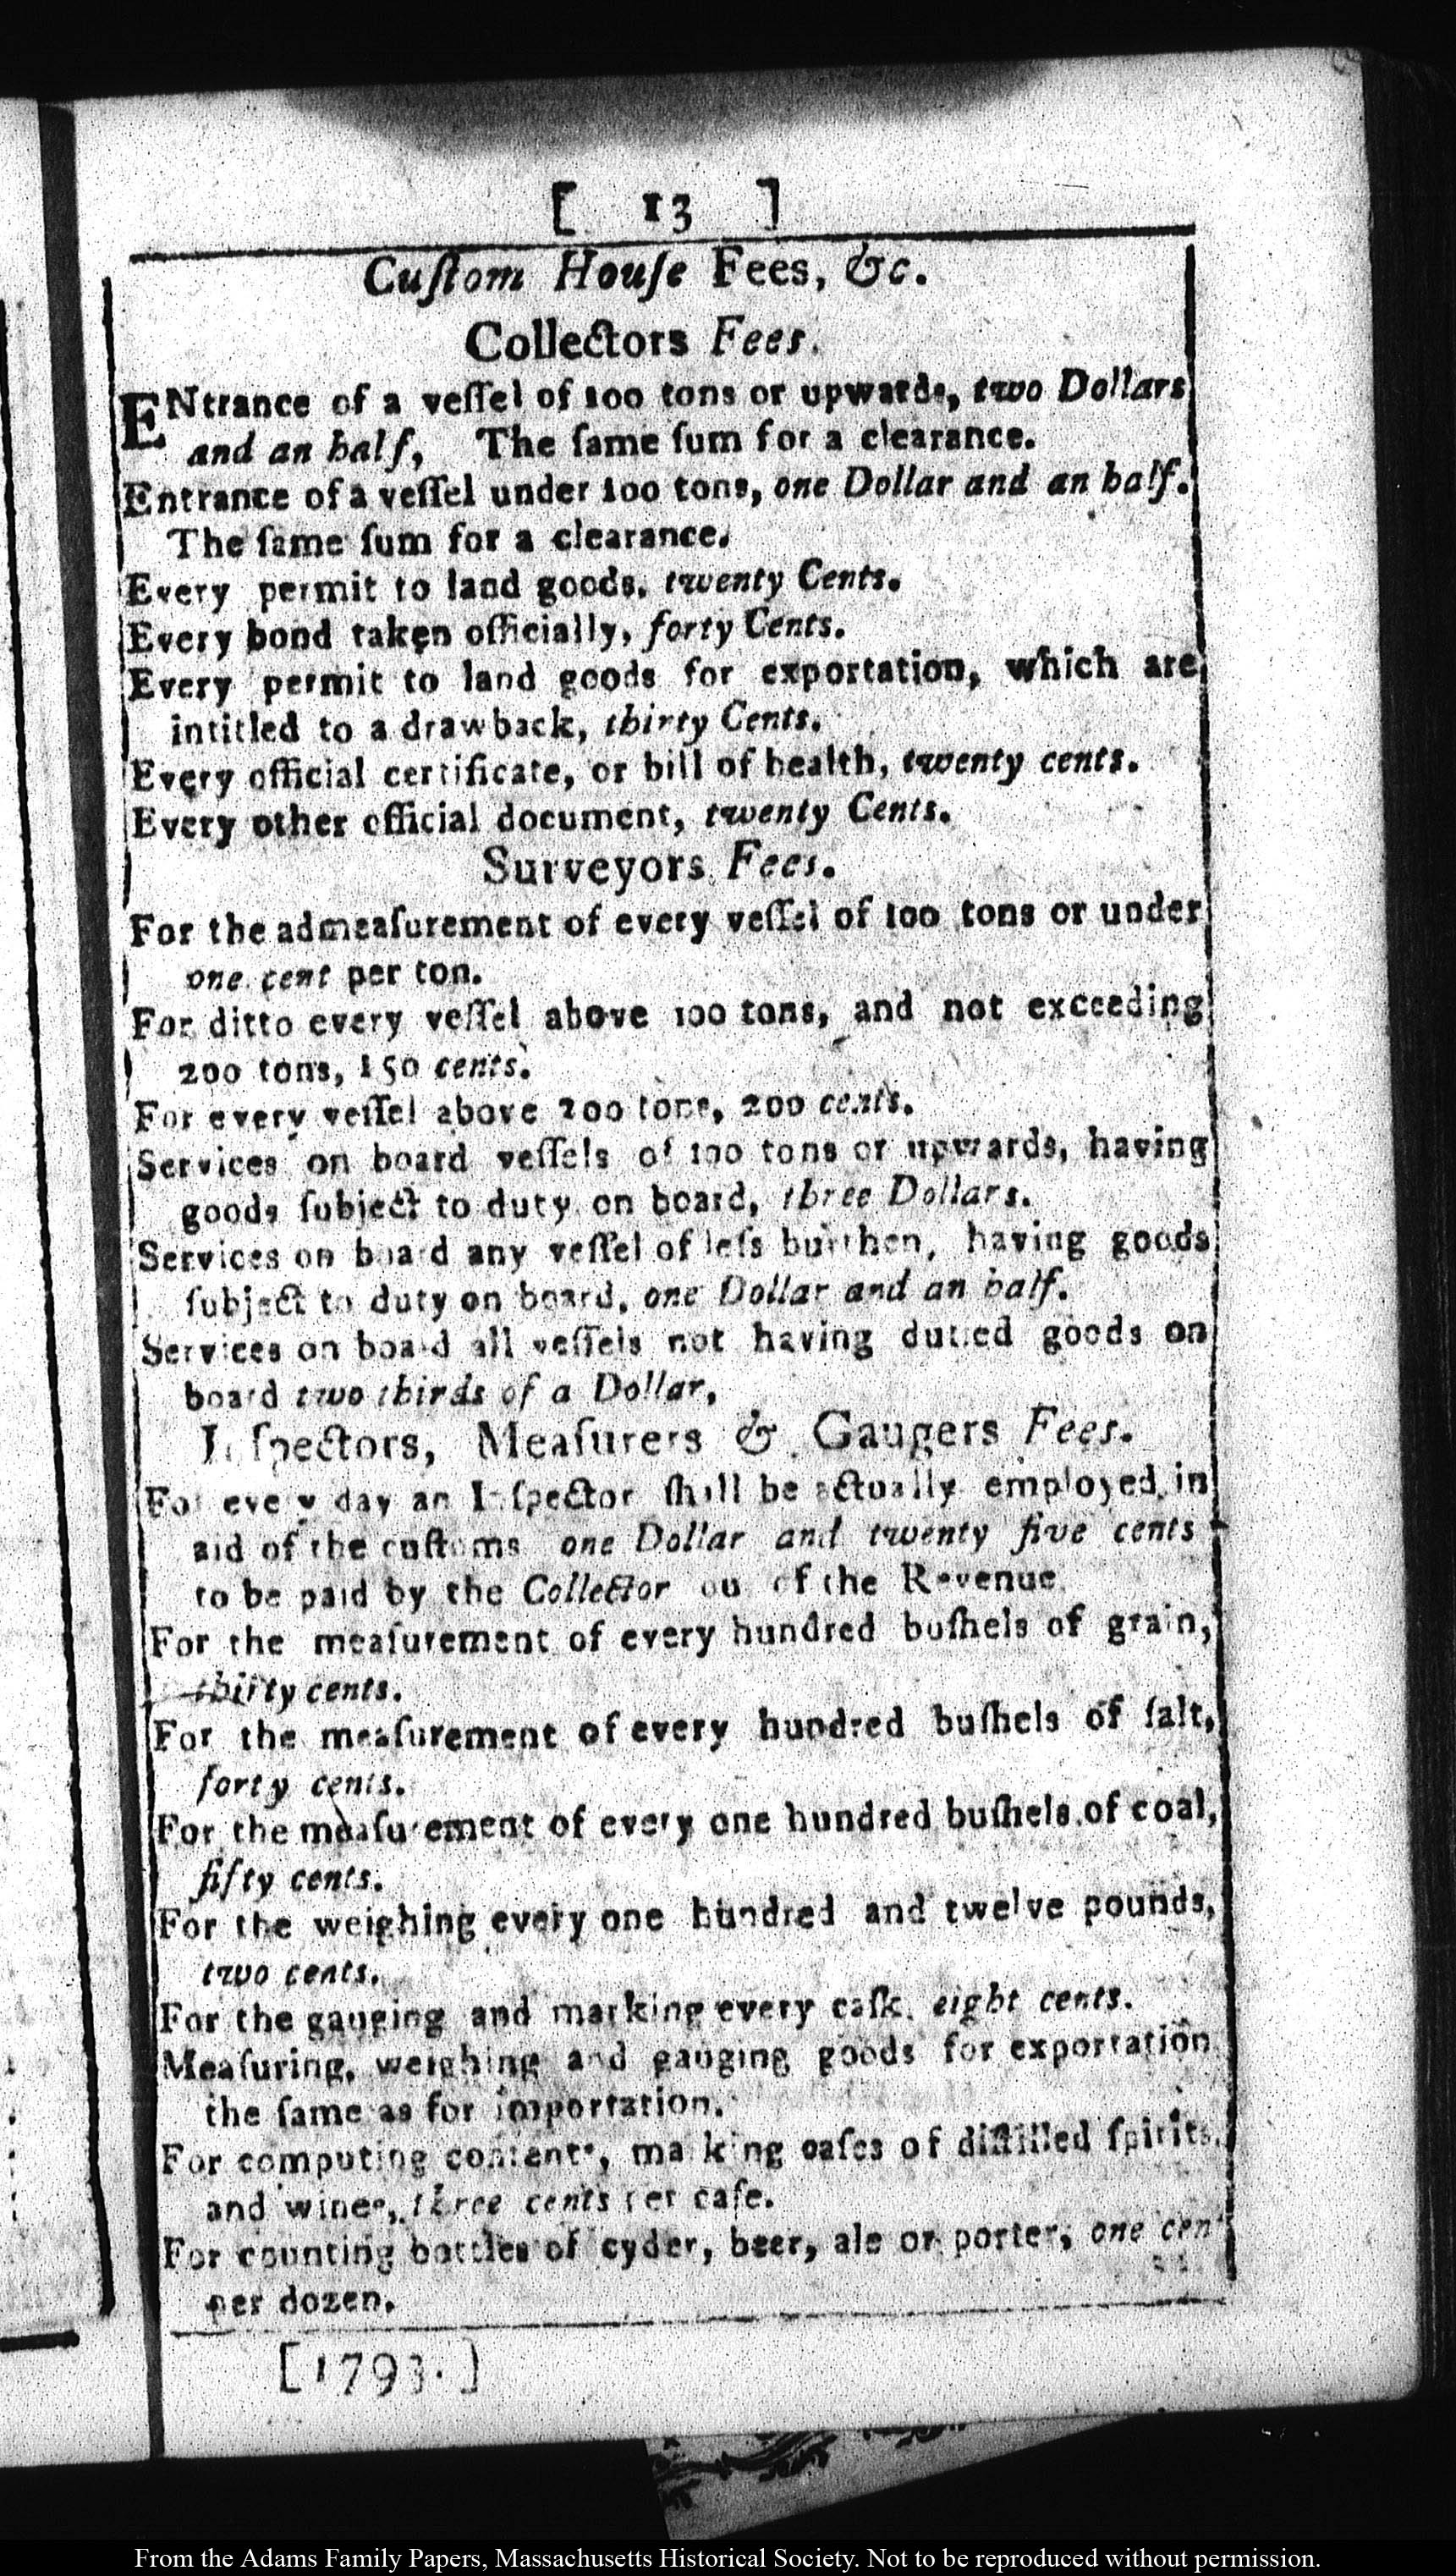 [ 13 ]
Cuſtom Houſe Fees, &c.
Collectors Fees.
ENtrance of a veſſel of 100 tons or upwards, two Dollars
and an half, The ſame ſum for a clearance.
Entrance of a veſſel under 100 tons, one Dollar and an half.
The ſame ſum for a clearance.
Every permit to land goods, twenty Cents.
Every bond taken officially, forty Cents.
Every permit to land goods for exportation, which are
intitled to a drawback, thirty Cents.
Every official certificate, or bill of health, twenty cents.
Every other official document, twenty Cents.
Surveyors Fees.
For the admeaſurement of every veſſel of 100 tons or under
one cent per ton.
For ditto every veſſel above 100 tons, and not exceeding
200 tons, 150 cents.
For every veſſel above 200 tons, 200 cents.
Services on board veſſels of 100 tons or upwards, having
goods ſubject to duty on board, three Dollars.
Services on board any veſſel of leſs burthen, having goods
ſubject to duty on board, one Dollar and an half.
Services on board all veſſels not having dutied goods on
board two thirds of a Dollar,
Inſpectors, Meaſurers & Gaugers Fees.
For every day an Inſpector ſhall be actually employed in
aid of the cuſtoms one Dollar and twenty five cents
to be paid by the Collector out of the Revenue.
For the meaſurement of every hundred buſhels of grain,
thirty cents.
For the meaſurement of every hundred buſhels of ſalt,
forty cents.
For the meaſurement of every one hundred buſhels of coal,
fifty cents.
For the weighing every one hundred and twelve pounds,
two cents.
For the gauging and marking every caſk, eight cents.
Meaſuring, weighing and gauging goods for exportation
the ſame as for importation.
For computing contents, making caſes of diſtilled ſpirits,
and wines, three cents per caſe.
For counting bottles of cyder, beer, ale or porter, one cent
per dozen.
[1793.]
From the Adams Family Papers, Massachusetts Historical Society. Not to be reproduced without permission.